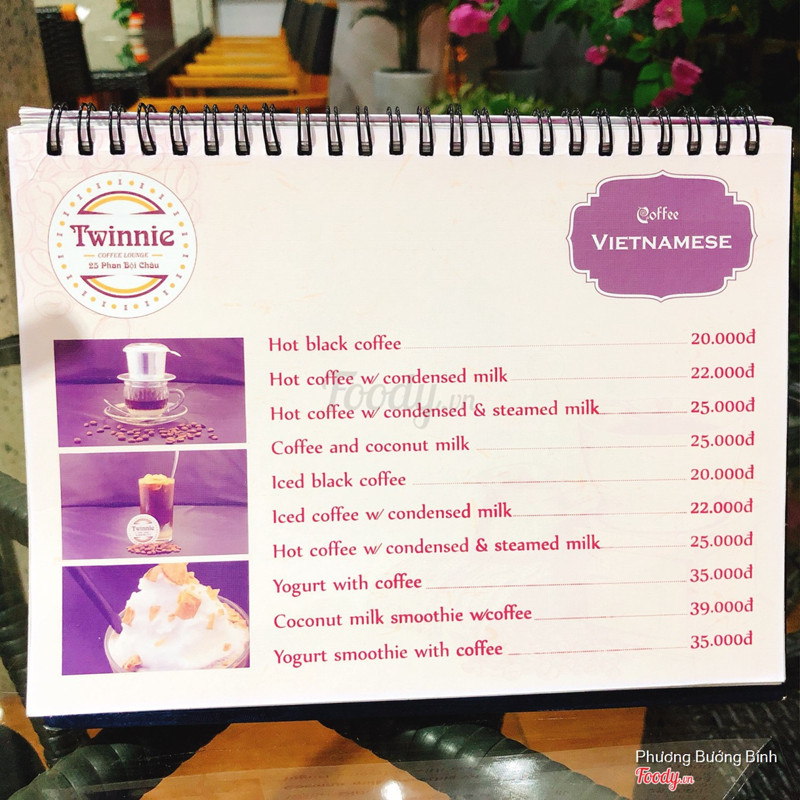 Twinnie
COFFEE LOUNGE
25 Phan Bội Châu
Coffee
VIETNAMESE
Hot black coffee 20.000đ
Hot coffee w/ condensed milk 22.000đ
Hot coffee w/ condensed & steamed milk 25.000đ
Coffee and coconut milk 25.000đ
Iced black coffee 20.000đ
Iced coffee w/ condensed milk 22.000đ
Hot coffee w/ condensed & steamed milk 25.000đ
Yogurt with coffee 35.000đ
Coconut milk smoothie w/coffee 39.000đ
Yogurt smoothie with coffee 35.000đ
Twinnie
Foody.vn
Phương Bướng Bỉnh
Foody.vn